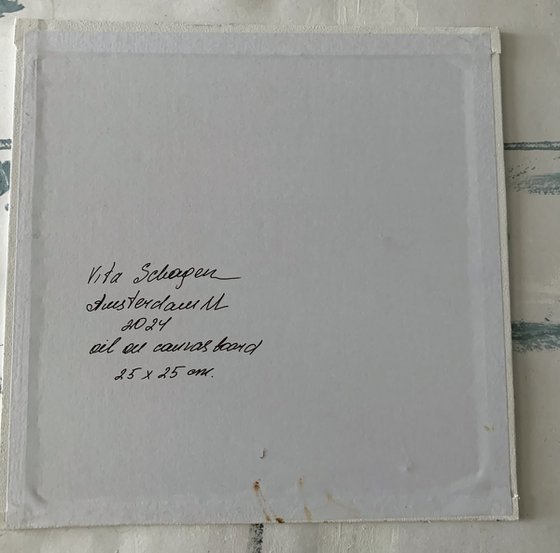 Vita Schagen
Amsterdam NL
2024
oil on canvas board
25 x 25 cm.